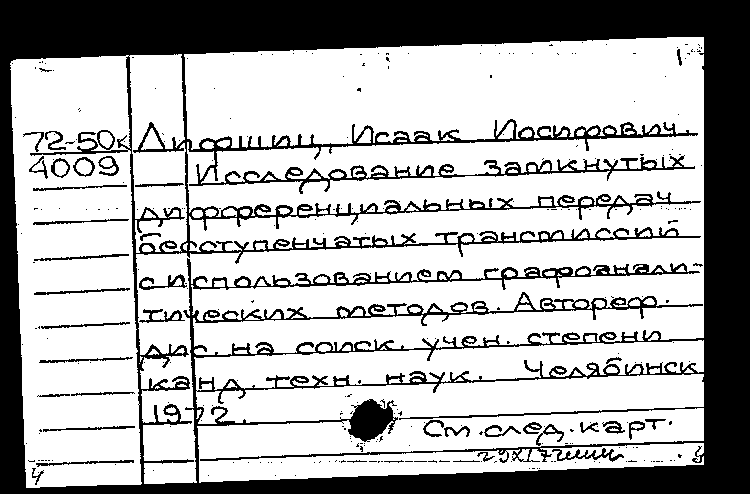 72-50к Лифшиц, Исаак Иосифович.
4009 Исследование замкнутых
дифференциальных передач
бесступенчатых трансмиссий
с использованием графоанали-
тических методов. Автореф.
дис. на соиск. учен. степени
канд. техн. наук. Челябинск,
1972.
См. след. карт.